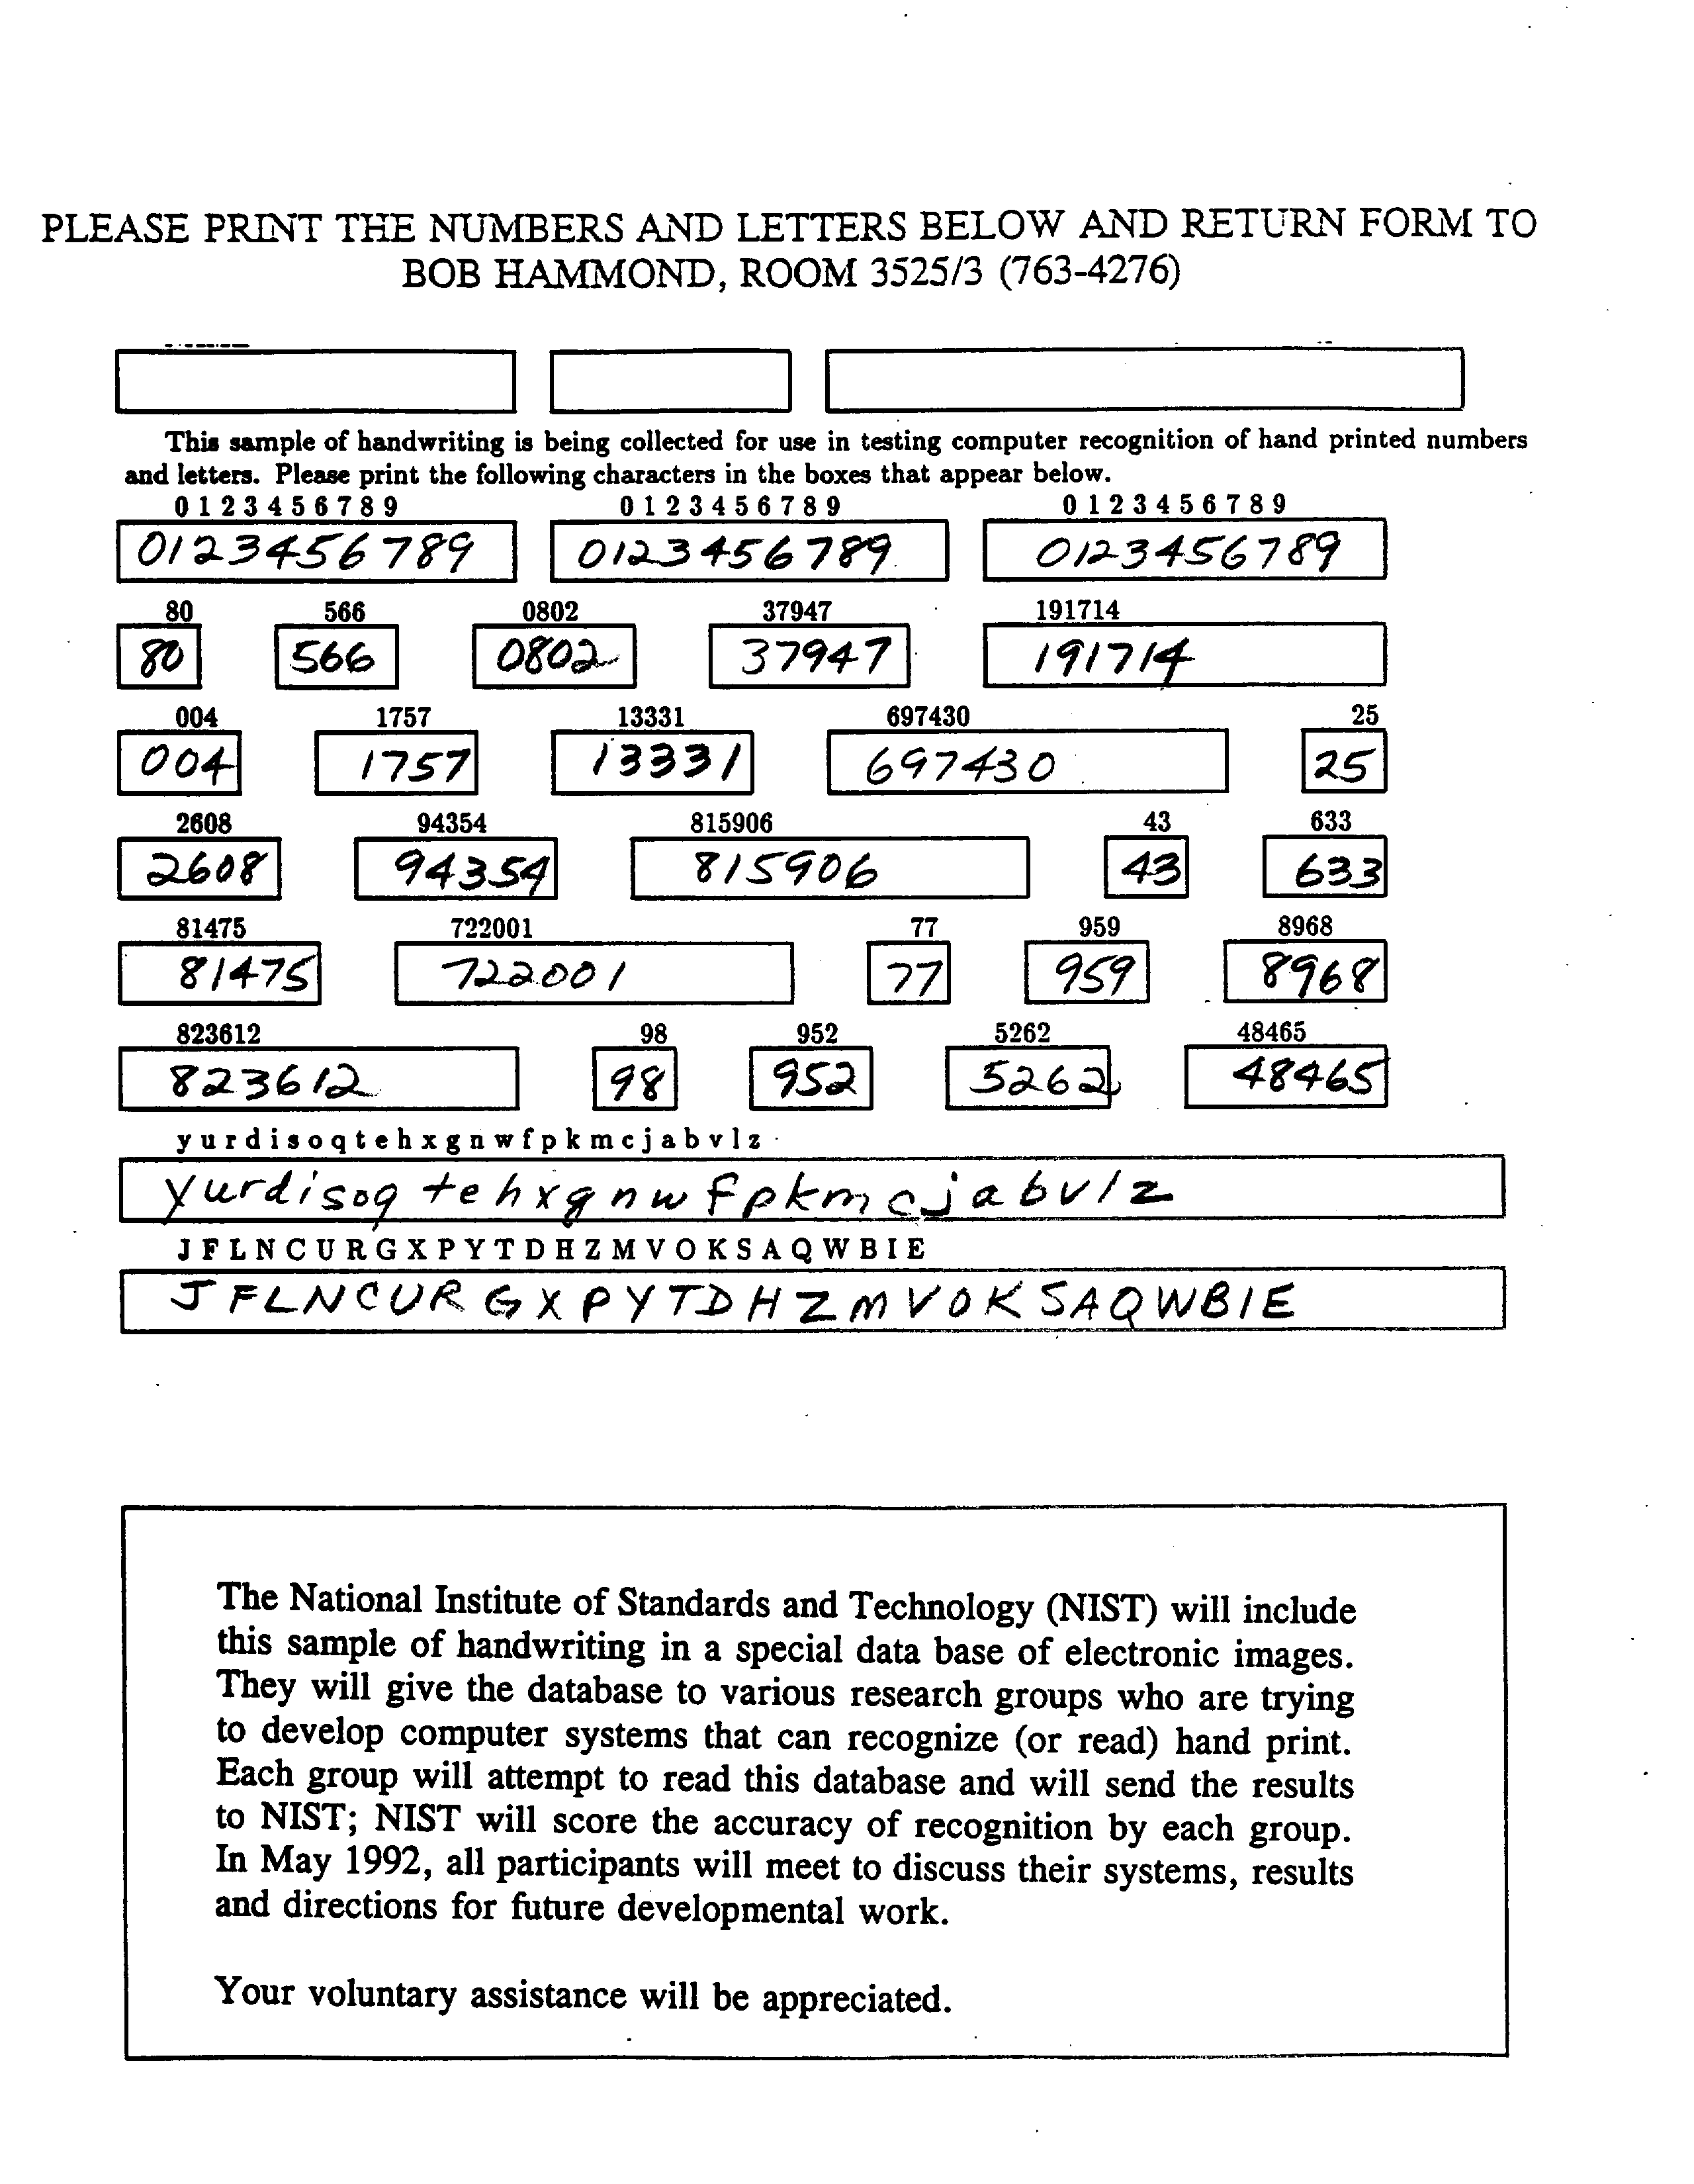 PLEASE PRINT THE NUMBERS AND LETTERS BELOW AND RETURN FORM TO
BOB HAMMOND, ROOM 3525/3 (763-4276)
This sample of handwriting is being collected for use in testing computer recognition of hand printed numbers
and letters. Please print the following characters in the boxes that appear below.
0 1 2 3 4 5 6 7 8 9 0 1 2 3 4 5 6 7 8 9 0 1 2 3 4 5 6 7 8 9
0123456789 0123456789 0123456789
80 566 0802 37947 191714
80 566 0802 37947 191714
004 1757 13331 697430 25
004 1757 13331 697430 25
2608 94354 815906 43 633
2608 94354 815906 43 633
81475 722001 77 959 8968
81475 722001 77 959 8968
823612 98 952 5262 48465
823612 98 952 5262 48465
y u r d i s o q t e h x g n w f p k m c j a b v l z
yurdisoq tehxgnwfpkmcjabvlz
J F L N C U R G X P Y T D H Z M V O K S A Q W B I E
JFLNCURGXPYTDHZMVOKSAQWBIE
The National Institute of Standards and Technology (NIST) will include
this sample of handwriting in a special data base of electronic images.
They will give the database to various research groups who are trying
to develop computer systems that can recognize (or read) hand print.
Each group will attempt to read this database and will send the results
to NIST; NIST will score the accuracy of recognition by each group.
In May 1992, all participants will meet to discuss their systems, results
and directions for future developmental work.
Your voluntary assistance will be appreciated.